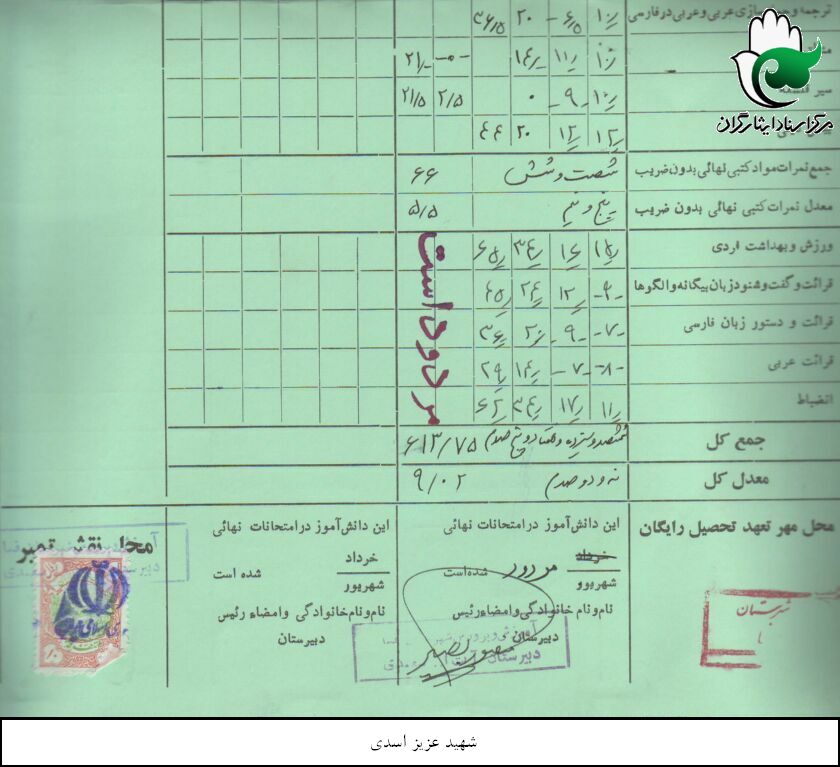 ترجمه و جمله سازی عربی و عربی در فارسی ۱۰ -۶/۵ ۲۰ ۳۶/۵
۱۰ ۱۱ ۱۴ ۲۱ -۰-
سیر فلسفه ۱۰ -۹- ۰ ۲/۵ ۲۱/۵
۱۲ ۱۲ ۲۰ ۴۴
مرکز اسناد ایثارگران
جمع نمرات مواد کتبی نهائی بدون ضریب شصت و شش ۶۶
معدل نمرات کتبی نهائی بدون ضریب پنج و نیم ۵/۵
ورزش و بهداشت فردی ۱۶ ۳۴ ۶۵
قرائت و گفت و شنود زبان بیگانه و الگوها -۹- ۱۲ ۲۴ ۴۵
قرائت و دستور زبان فارسی -۷- -۹- ۲۰ ۳۶
قرائت عربی -۸- -۷- ۱۴ ۲۹
انضباط ۱۱ ۱۷ ۳۴ ۶۲
مردود است
جمع کل ششصد و سیزده و هفتاد و پنج صدم ۶۱۳/۷۵
معدل کل نه و دو صدم ۹/۰۲
محل مهر تعهد تحصیل رایگان
این دانش‌آموز در امتحانات نهائی
خرداد
شهریور
مردود شده است
نام و نام خانوادگی و امضاء رئیس
دبیرستان
این دانش‌آموز در امتحانات نهائی
خرداد
شهریور
شده است
نام و نام خانوادگی و امضاء رئیس
دبیرستان
محل نقش تمبر
آموزش و پرورش شهر
دبیرستان
شهید عزیز اسدی